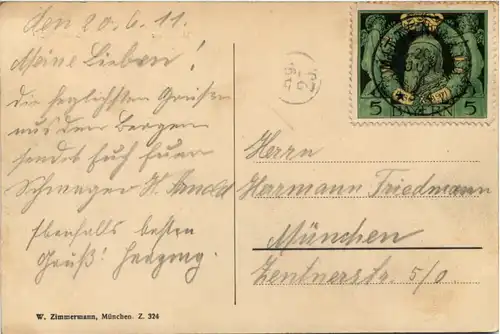 den 20.6.11.
Meine Lieben!
die herzlichsten Grüße
aus den Bergen
sendet Euch Euer
Schwager H. Arnold
Ebenfalls besten
Gruß! Herzog.
W. Zimmermann, München. Z. 324
5 5
BAYERN
Herrn
Herrmann Friedmann
München
Zentnerstr. 5/0.